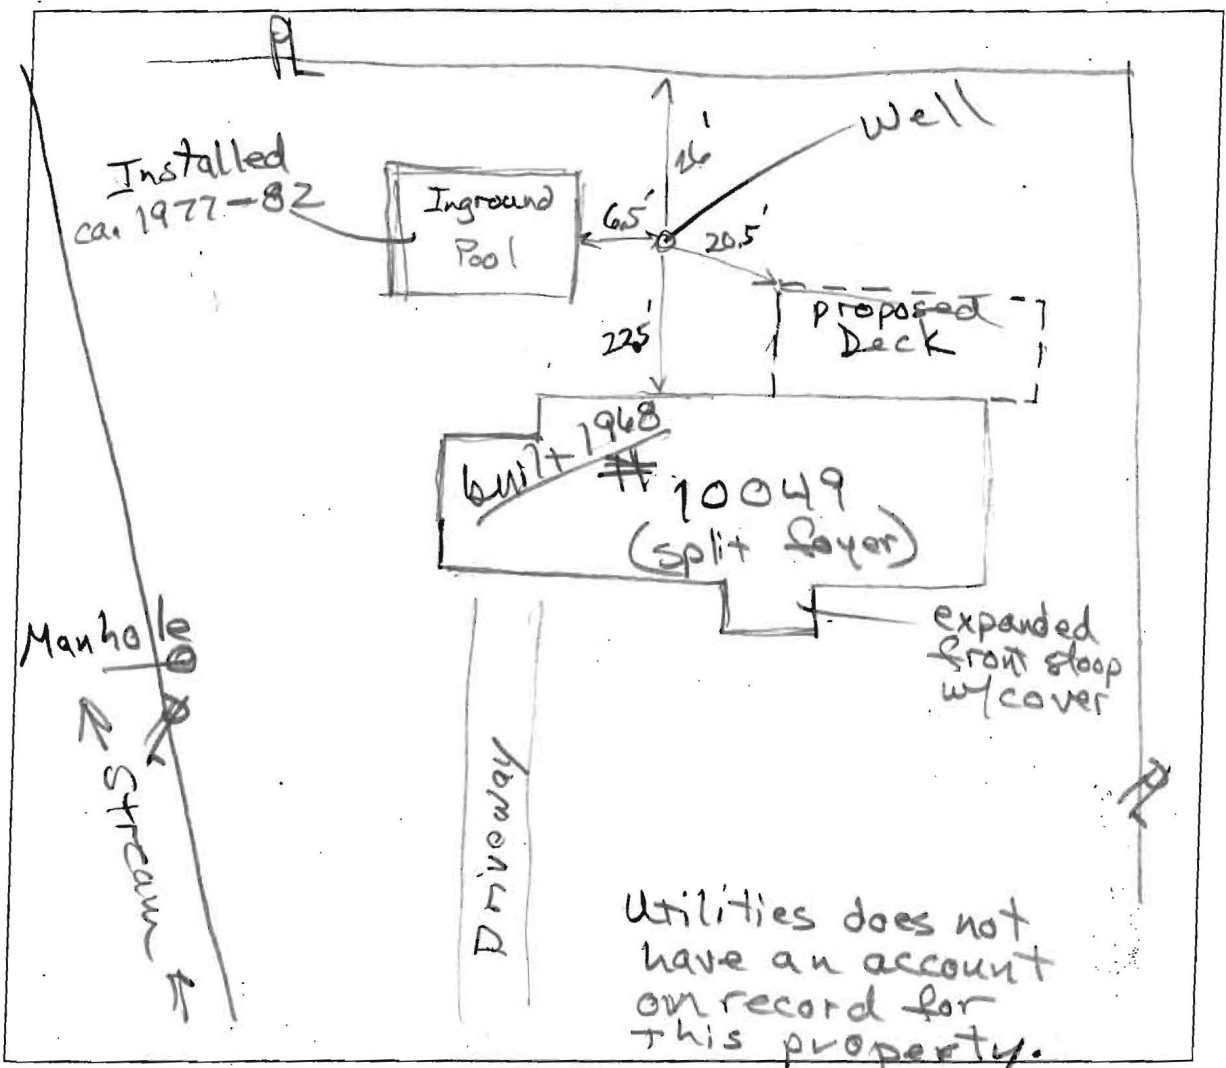 PL
Well
26'
Installed
ca. 1977-82
Inground
Pool
6.5'
20.5'
proposed
Deck
22.5'
built 1968
# 10049
(split foyer)
expanded
front stoop
w/cover
Manhole
Stream
Driveway
PL
Utilities does not
have an account
on record for
This property.